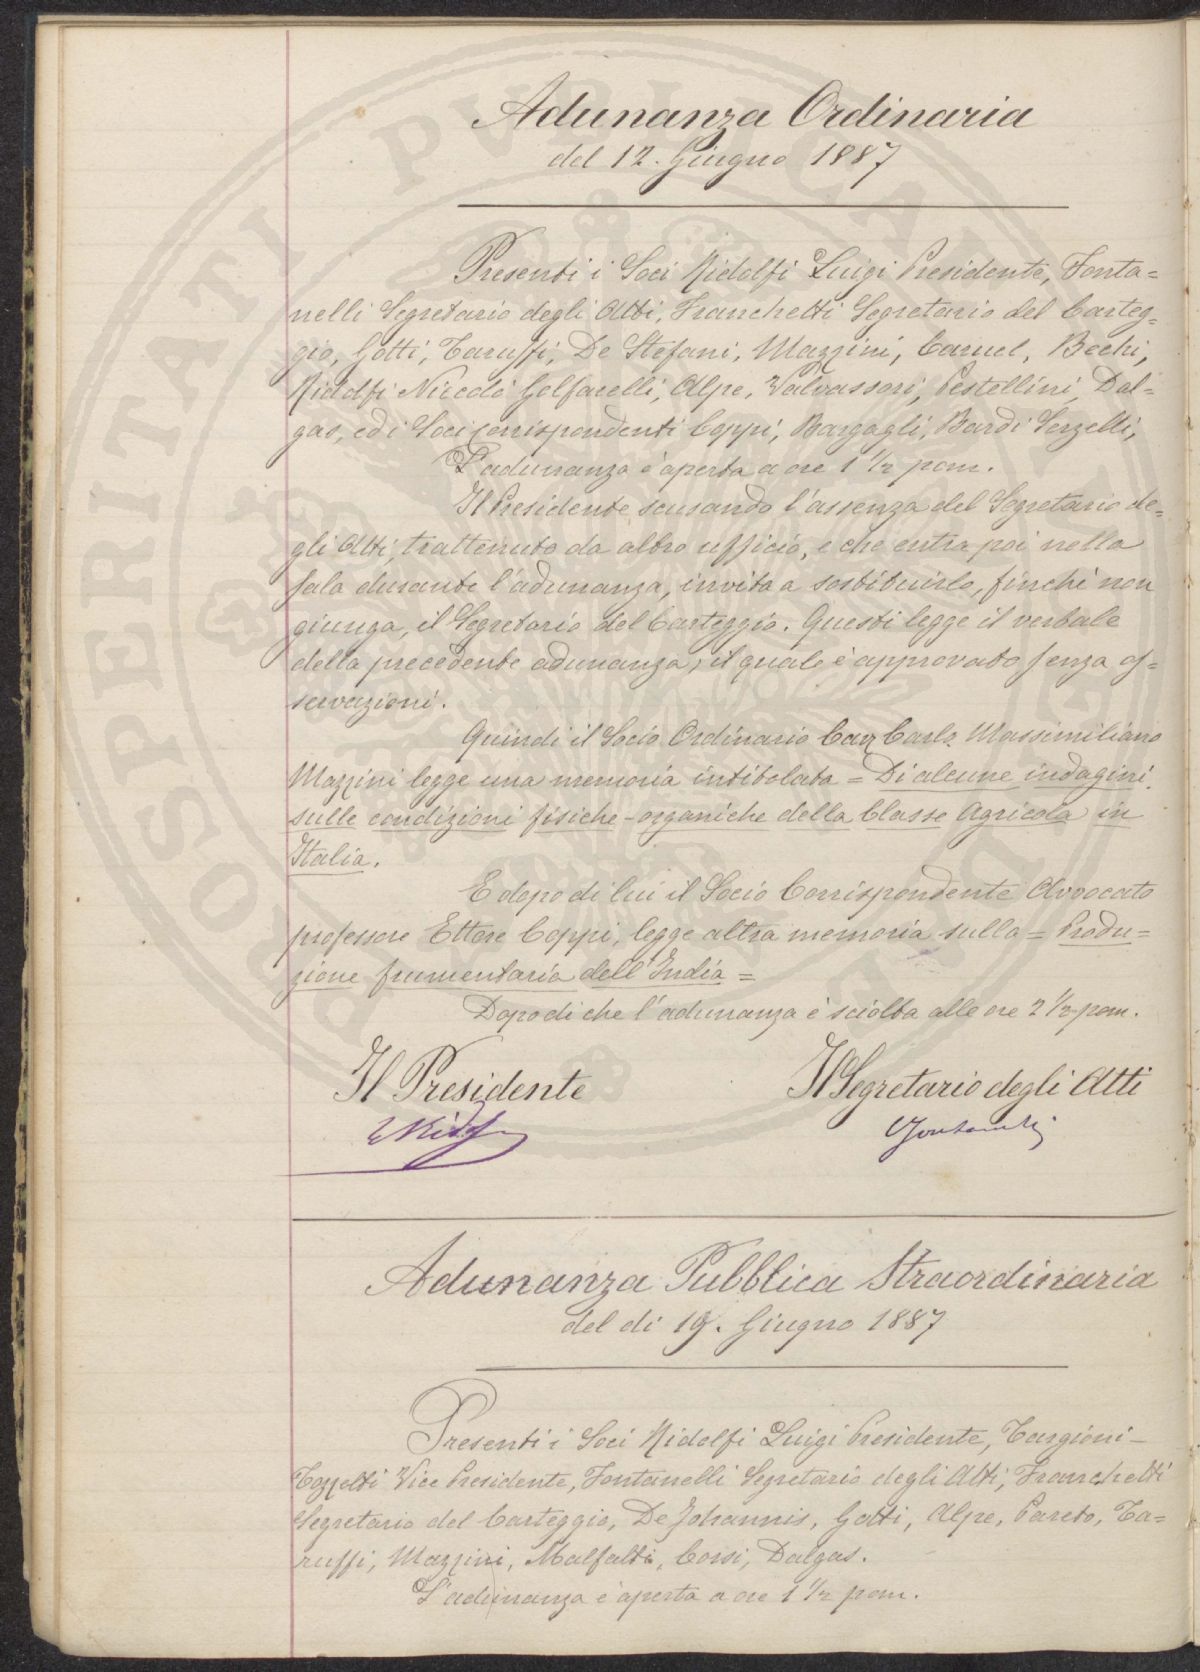 Adunanza Ordinaria
del 12. Giugno 1887
Presenti i Soci Ridolfi Luigi Presidente, Fonta=
nelli Segretario degli Atti, Franchetti Segretario del Carteg=
gio, Gotti, Taruffi, De Stefani, Mazzini, Caruel, Bechi,
Ridolfi Niccolò Golfarelli, Alpe, Valvassori, Pestellini, Dal=
gas, ed i Soci Corrispondenti Coppi, Bargagli, Bardi Serzelli,
L'adunanza è aperta a ore 1 ½ pom.
Il Presidente scusando l'assenza del Segretario de=
gli Atti, trattenuto da altro ufficio, e che entra poi nella
sala durante l'adunanza, invita a sostituirlo, finchè non
giunga, il Segretario del Carteggio. Questi legge il verbale
della precedente adunanza, il quale è approvato senza os=
servazioni.
Quindi il Socio Ordinario Cav Carlo Massimiliano
Mazzini legge una memoria intitolata = Di alcune indagini
sulle condizioni fisiche-organiche della Classe Agricola in
Italia.
E dopo di lui il Socio Corrispondente Avvocato
professore Ettore Coppi, legge altra memoria sulla = Produ=
zione frumentaria dell'India =
Dopo di che l'adunanza è sciolta alle ore 2 ½ pom.
Il Presidente Il Segretario degli Atti
LRidolfi Fontanelli
Adunanza Pubblica Straordinaria
del dì 19. Giugno 1887
Presenti i Soci Ridolfi Luigi Presidente, Targioni-
Tozzetti Vice Presidente, Fontanelli Segretario degli Atti, Franchetti
Segretario del Carteggio, De Johannis, Gotti, Alpe, Pareto, Ta=
ruffi, Mazzini, Malfatti, Corsi, Dalgas.
L'adunanza è aperta a ore 1 ½ pom.
PROSPERITATI PVBLICAE